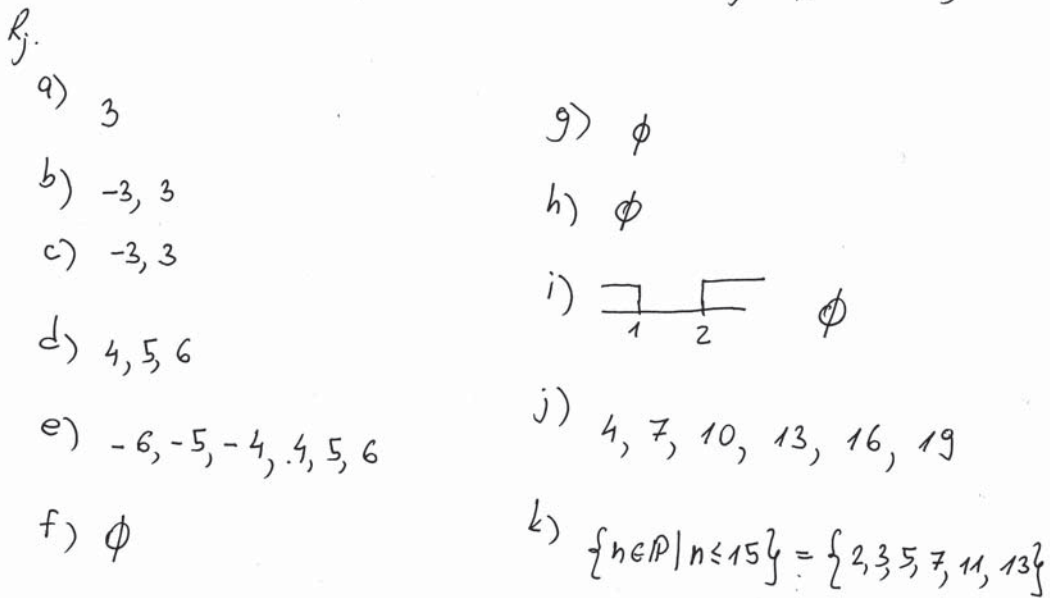 Rj.
a) 3
b) -3, 3
c) -3, 3
d) 4, 5, 6
e) -6, -5, -4, 4, 5, 6
f) ϕ
g) ϕ
h) ϕ
i) 1 2 ϕ
j) 4, 7, 10, 13, 16, 19
k) {n∈ℙ|n≤15} = {2,3,5,7,11,13}